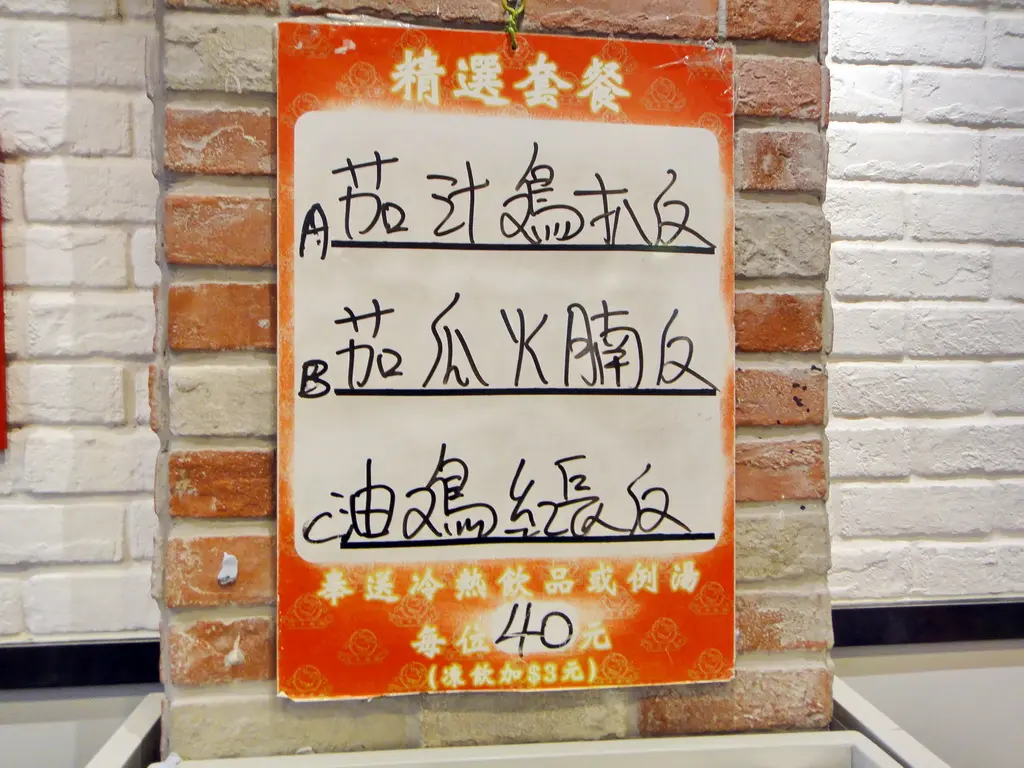 精選套餐
A 茄汁鸡扒反
B 茄瓜火腩反
C 油鸡紅長反
奉送冷熱飲品或例湯
每位40元
(凍飲加$3元)